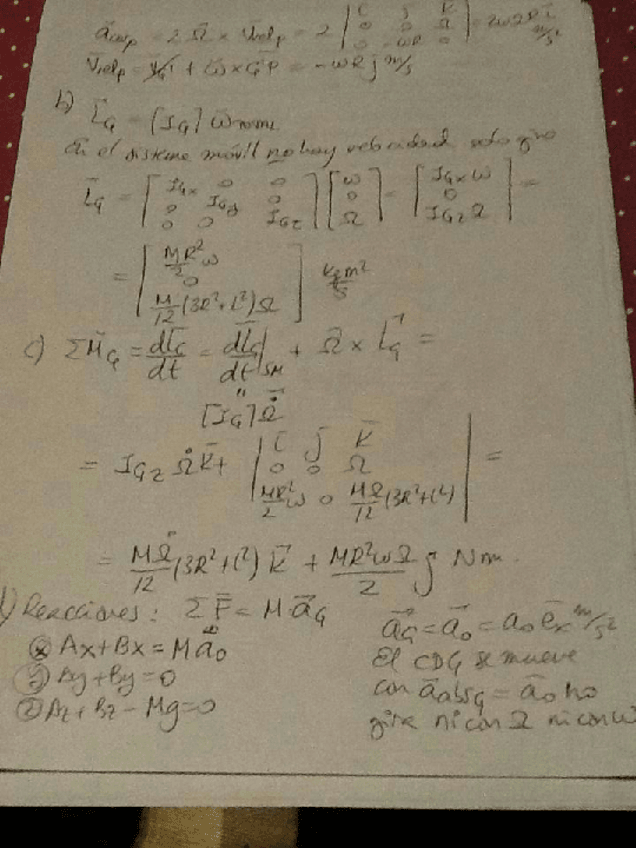 a⃗corp = 2 Ω⃗ × V⃗relp = 2 | i j k ; 0 0 Ω ; 0 -ωR 0 | = 2ωΩR i⃗ m/s²
V⃗relp = + ω⃗ × G⃗P = -ωR j m/s
b) L̄G = [IG] ω̄
En el sistema móvil no hay velocidad solo giro
L̄G = [ IGx 0 0 ; 0 IGy 0 ; 0 0 IGz ] [ ω ; 0 ; Ω ] = [ IGx ω ; 0 ; IGz Ω ] =
= [ MR²/2 ω ; 0 ; M/12 (3R²+L²) Ω ] kg m²/s
c) ΣM̄G = dL̄G/dt = dL̄G/dt |SM + Ω̄ × L⃗G =
" [IG] Ω̇
= IGz Ω̇ k̄ + | i j k ; 0 0 Ω ; MR²/2 ω 0 MΩ/12 (3R²+L²) | =
= MΩ̇/12 (3R²+L²) k⃗ + MR²ωΩ/2 j Nm.
d) Reacciones: ΣF̄ = M a⃗G
a⃗G = a⃗o = ao ēx m/s²
ⓧ Ax+Bx = M ao
El CDG se mueve
ⓨ Ay+By = 0
con a⃗absG = a⃗o no
ⓩ Az+Bz-Mg=0
gira ni con Ω ni con ω